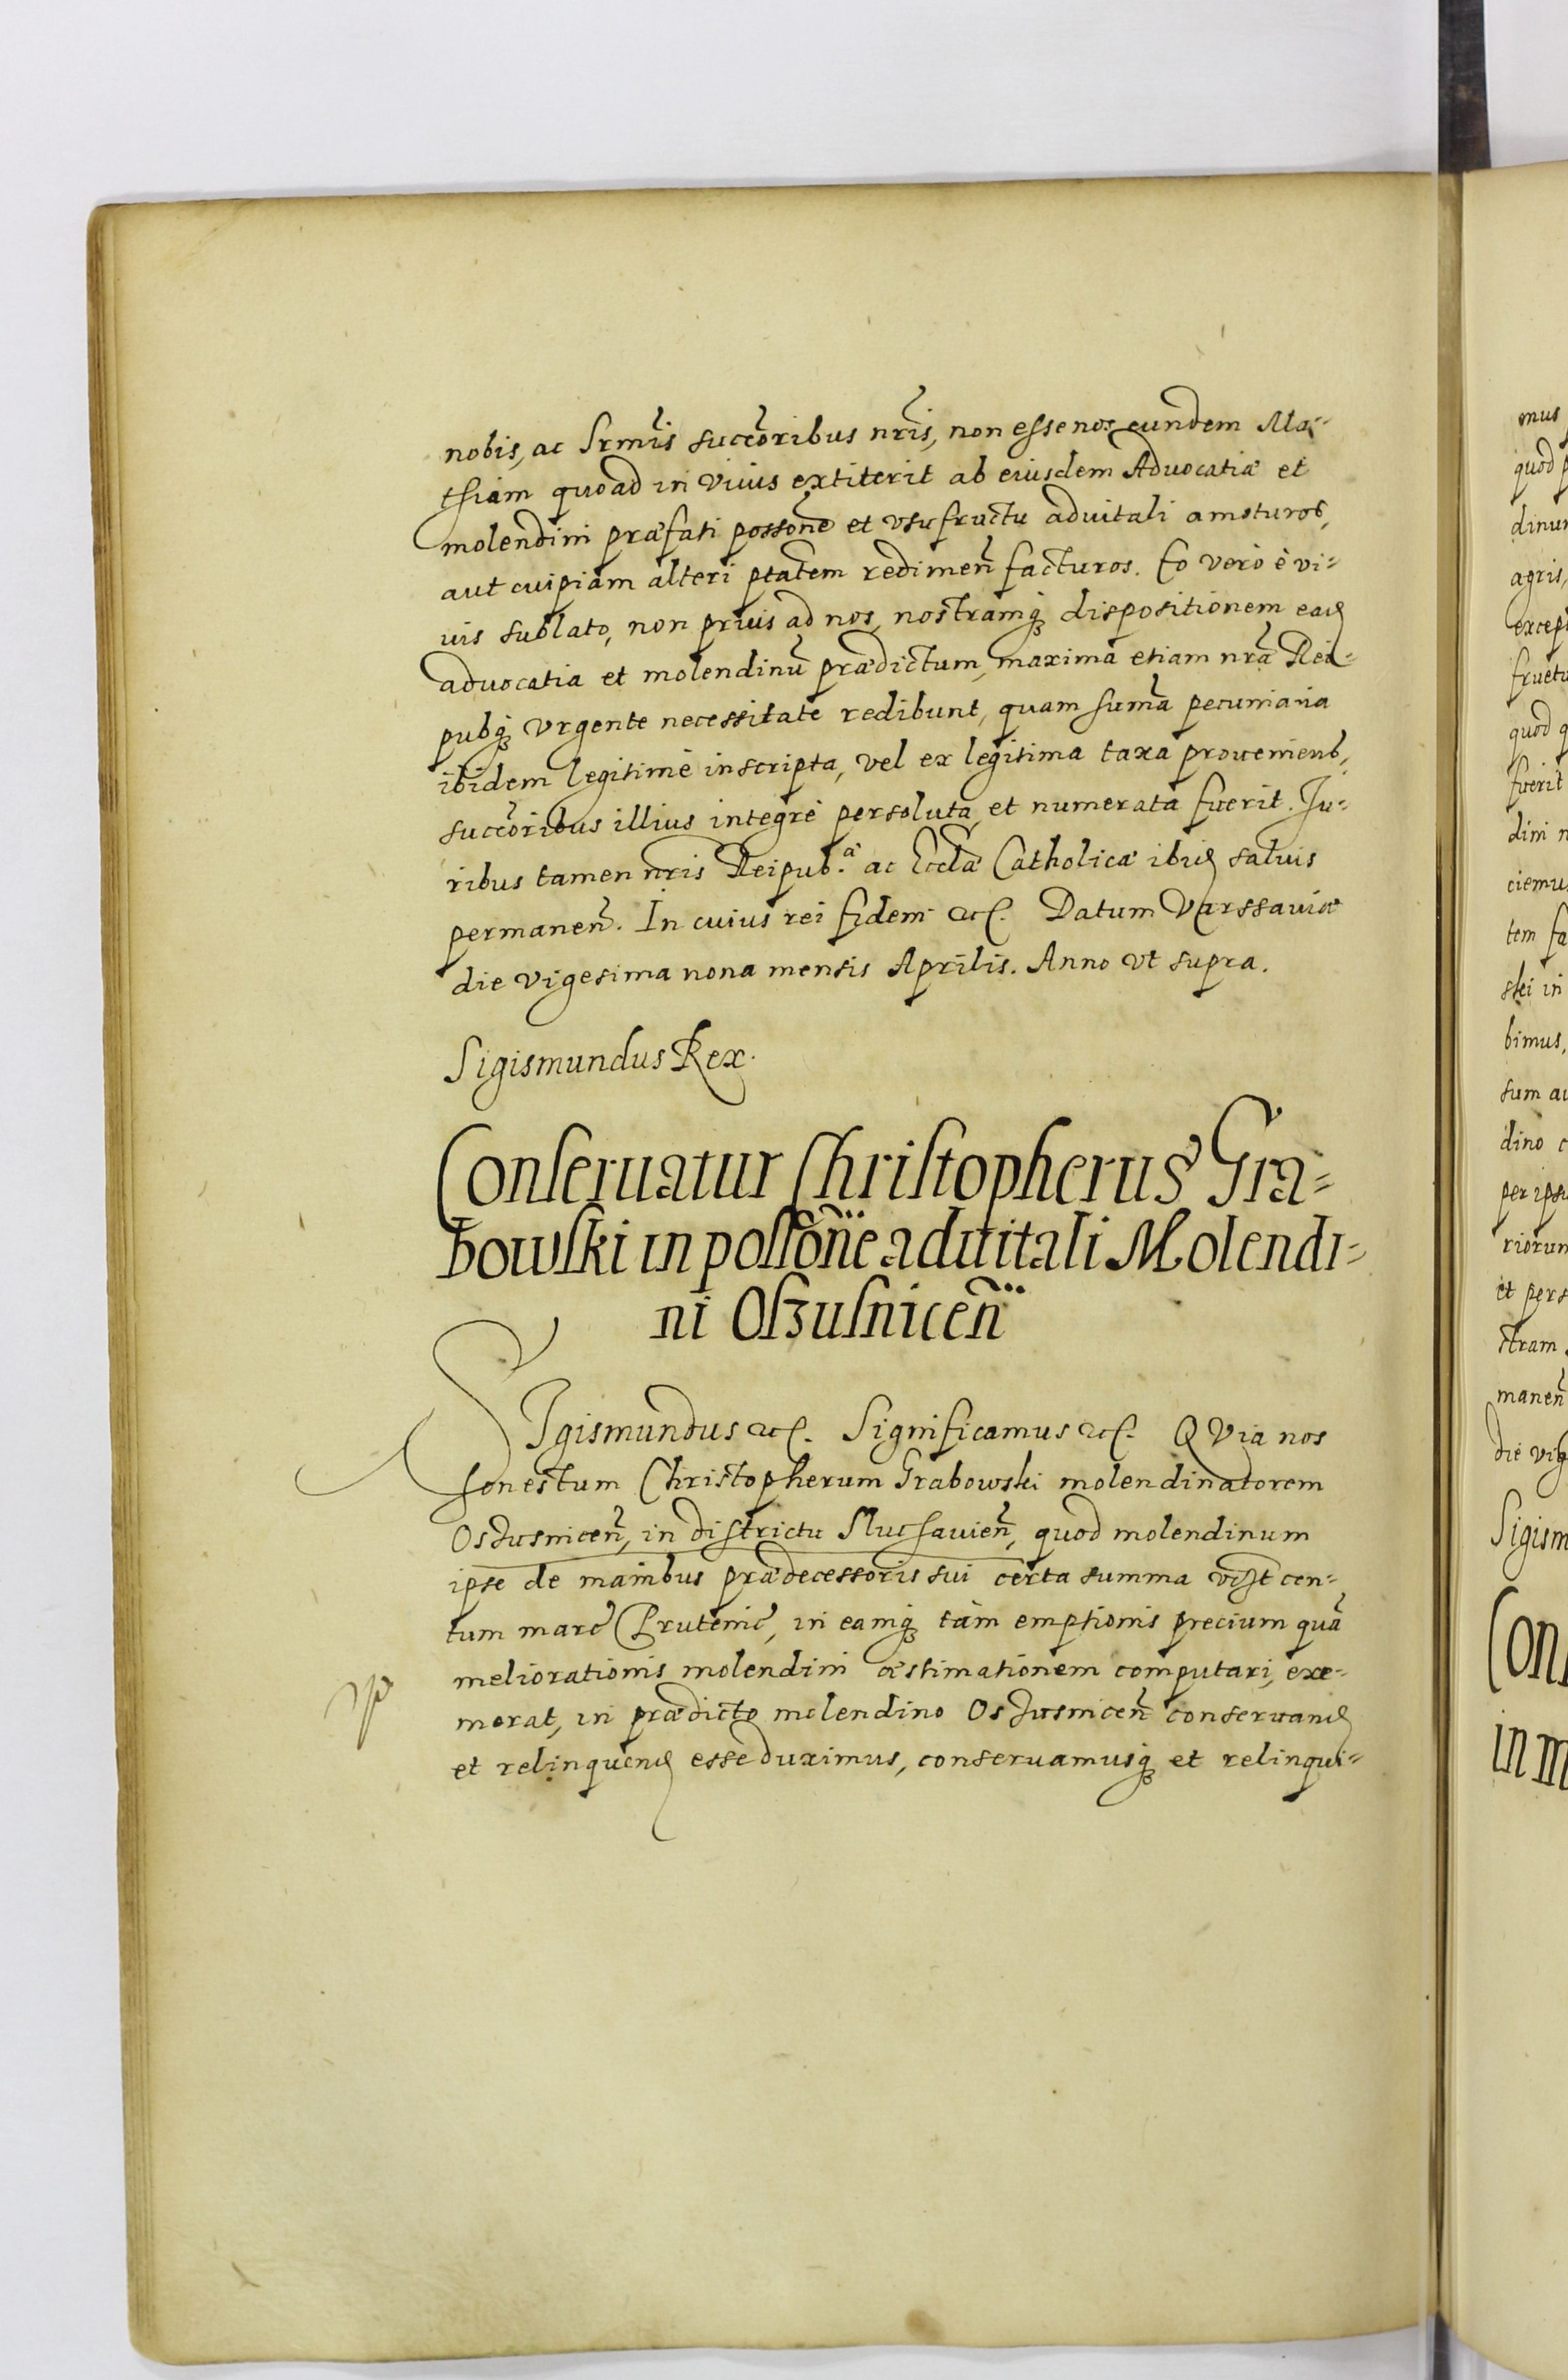 nobis, ac Srm̃is succ̃oribus nr̃is, non esse nos eundem Ma-
thiam quoad in viuis extiterit ab eiusdem Aduocatiæ et
molendini præfati possõne et vsufructu aduitali amoturos,
aut cuipiam alteri ptatem redimeñ facturos. Eo vero è vi-
uis sublato, non prius ad nos, nostramq; dispositionem ead
aduocatia et molendinũ prædictum, maxima etiam nr̃a Rei-
pubq; vrgente necessitate redibunt, quam sum̃a pecuniaria
ibidem legitimè inscripta, vel ex legitima taxa proueniens,
succ̃oribus illius integrè persoluta, et numerata fuerit. Iu-
ribus tamen nr̃is Reipub.ᵃ ac Eccl̃æ Catholicæ ibid saluis
permaneñ. In cuius rei fidem etc. Datum Varssauiæ
die vigesima nona mensis Aprilis. Anno vt supra.
Sigismundus Rex.
Conseruatur Christopherus Gra-
bowski in possõne aduitali Molendi-
ni Oszusniceñ
SIgismundus etc. Significamus etc. QVia nos
honestum Christopherum Grabowski molendinatorem
Oszusniceñ, in districtu Sluchauieñ, quod molendinum
ipse de manibus prædecessoris sui certa summa vist cen-
tum marc Prutenic, in eamq; tàm emptionis precium quã
meliorationis molendini æstimationem computari, exe-
merat, in prædicto molendino Oszusniceñ conseruand
et relinquend esse duximus, conseruamusq; et relinqui-
omus
quod p
dinum
agris,
except
fructu
quod q
fuerit
dini n
ciemu
tem fa
ski in
bimus,
sum au
dino c
per ipsu
riorum
et pers
stram
maneñ
die vig
Sigism
Con
in m